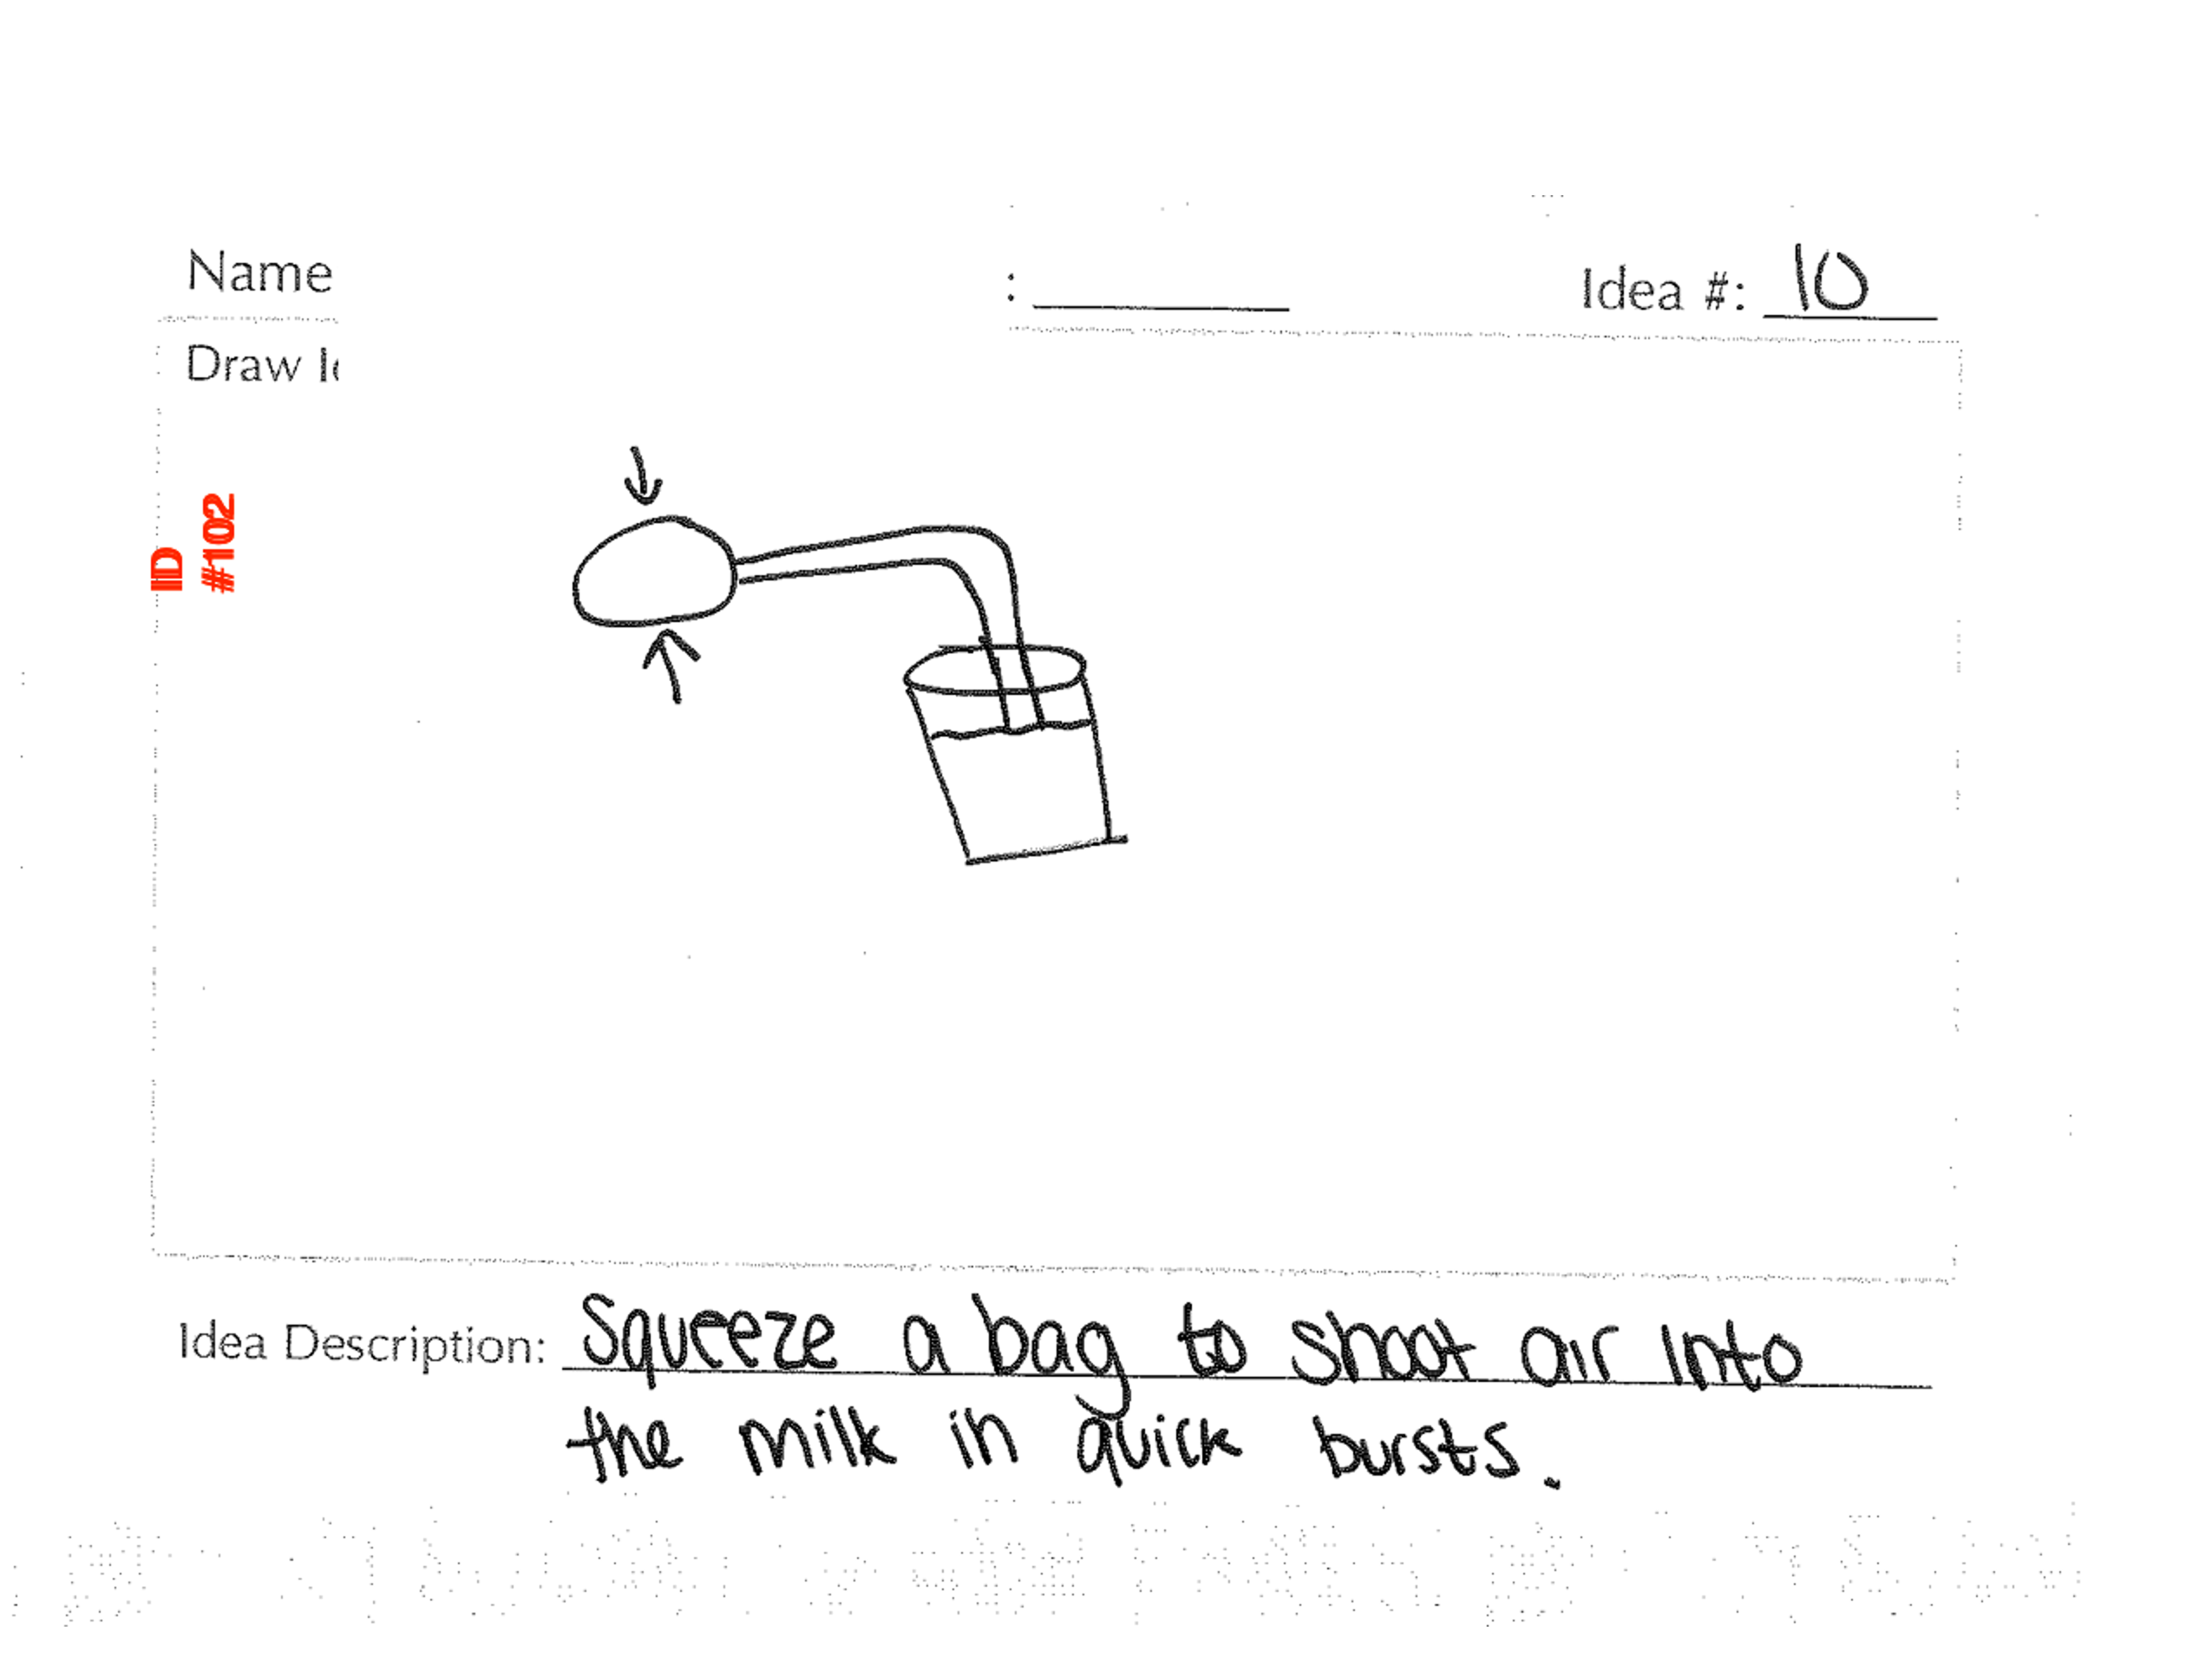 Name
: Idea #: 10
Draw
ID
#102
Idea Description: Squeeze a bag to shoot air into
the milk in quick bursts.